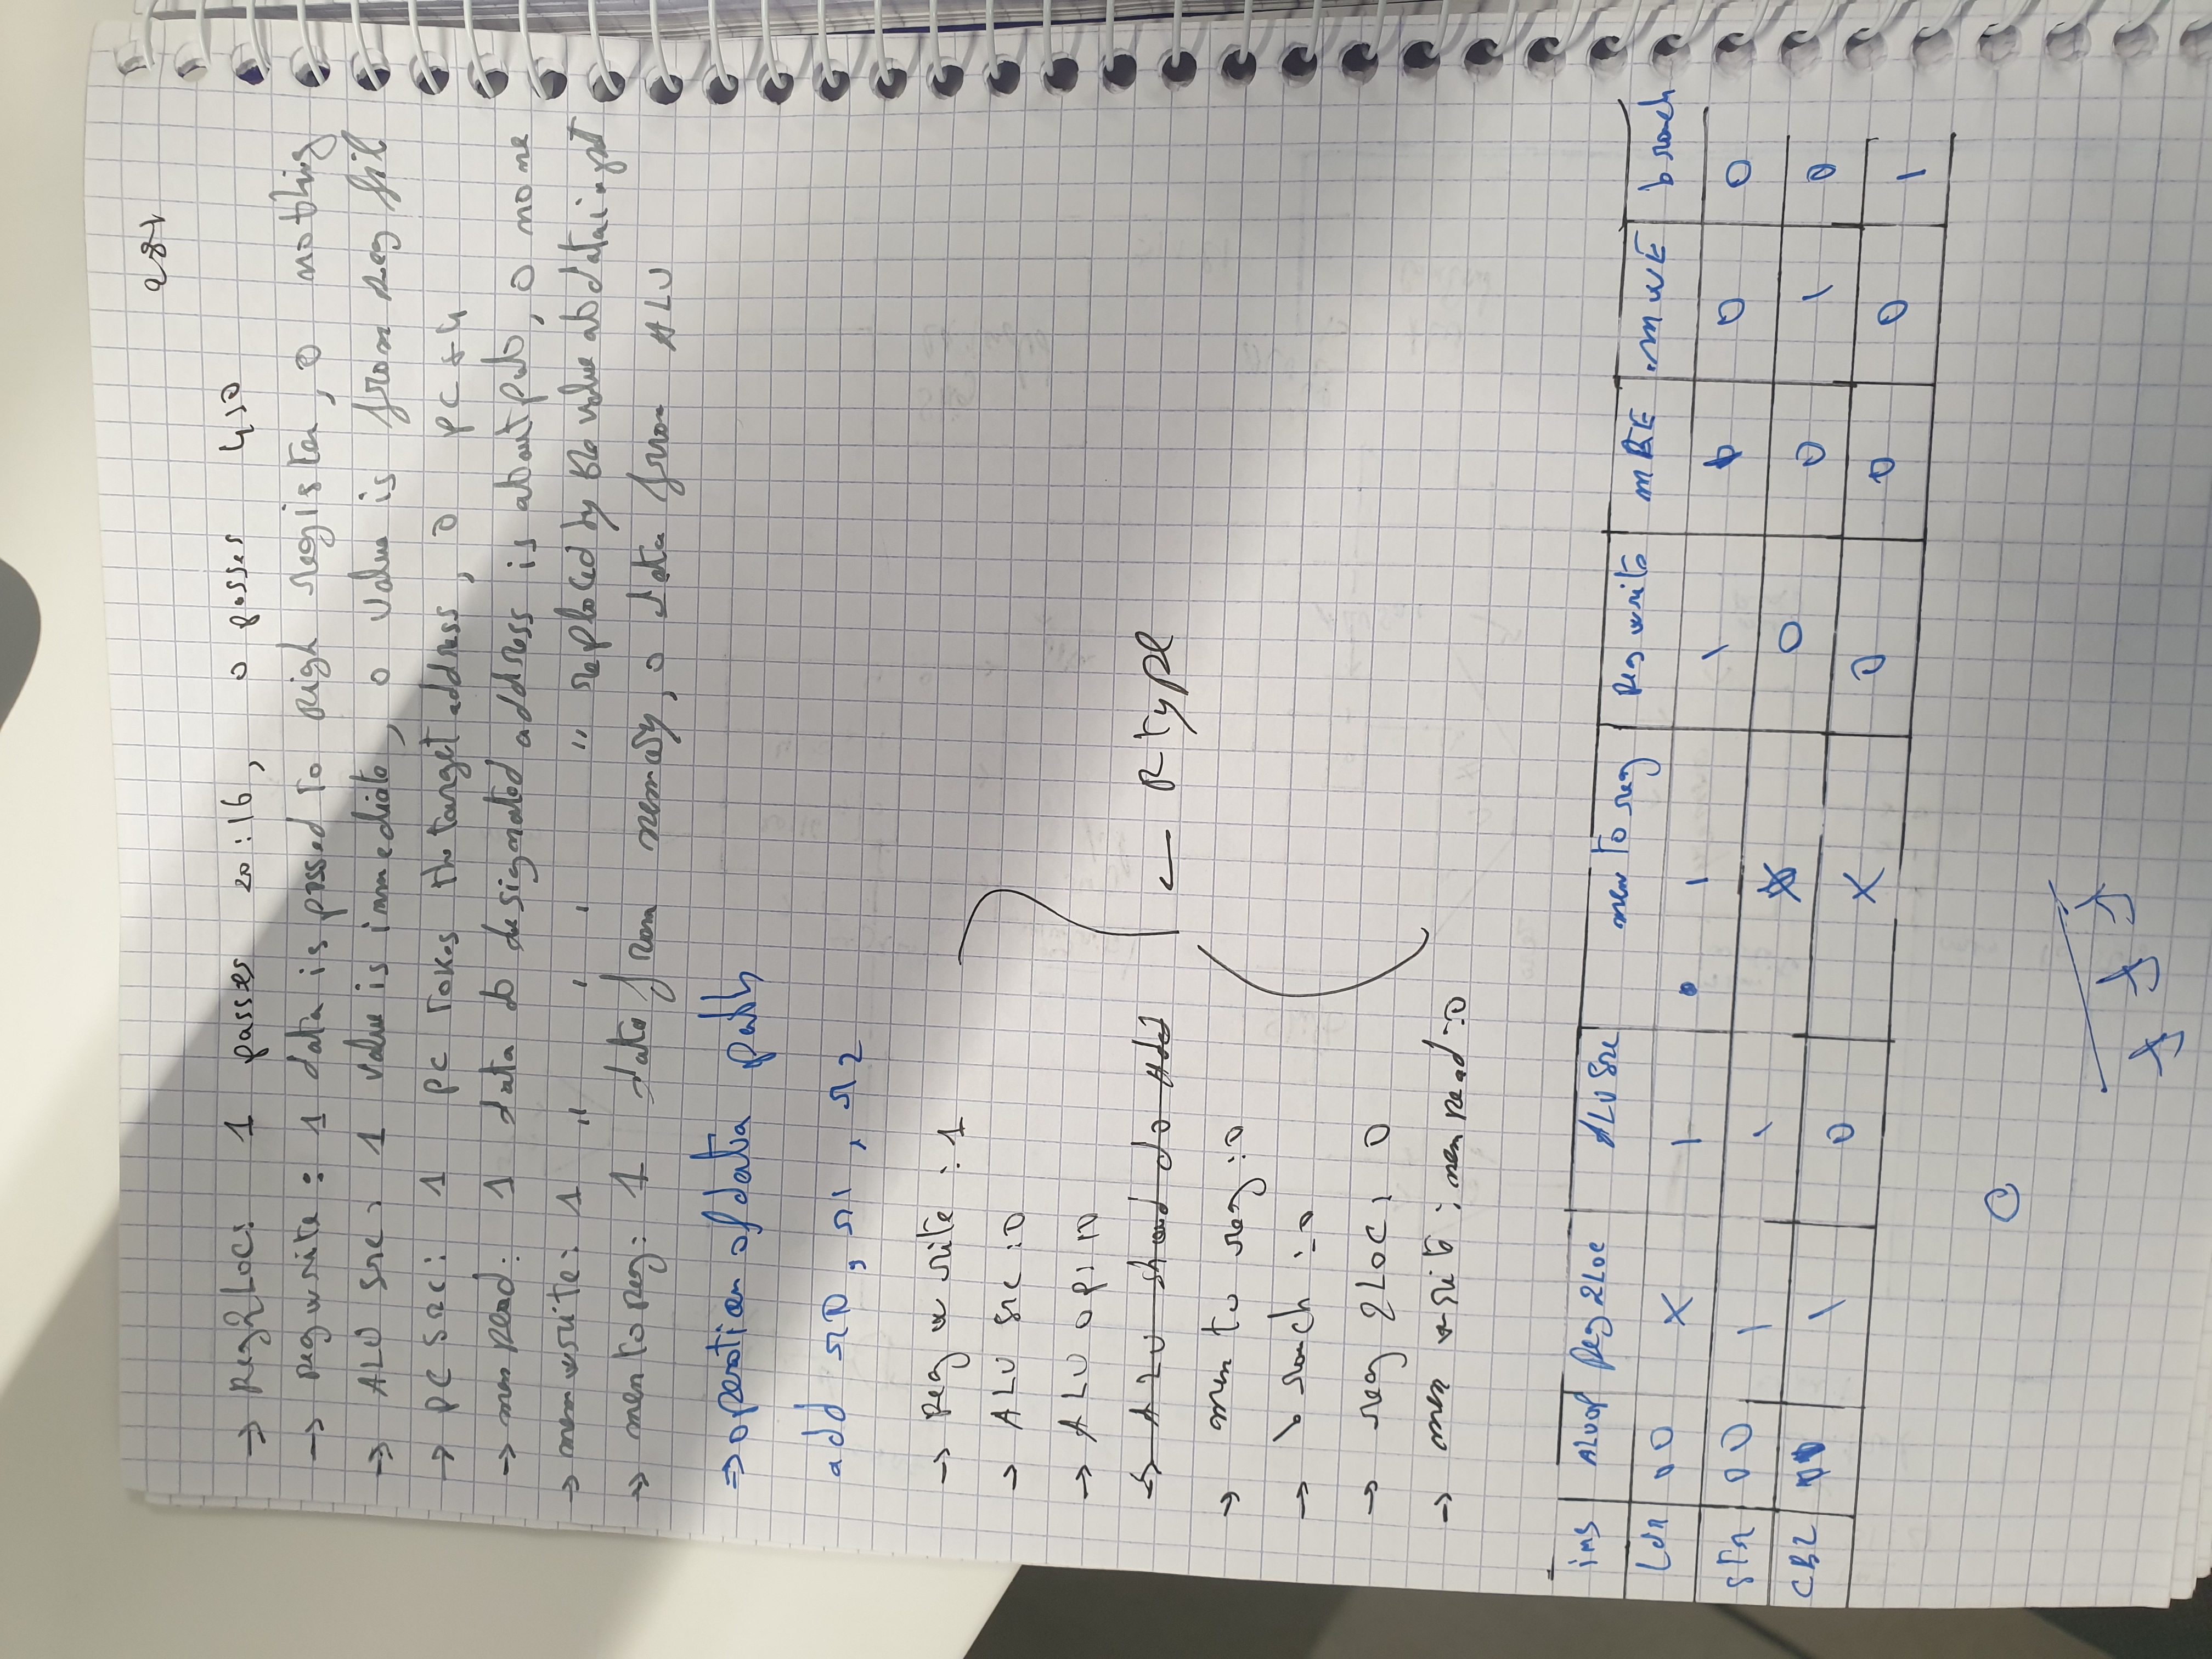 281
→ Reg2Loc: 1 passes 20:16, 0 passes 4:0
→ Reg write: 1 data is passed to Righ register, 0 nothing
→ ALU Src: 1 value is immediate, 0 value is from Reg fil
→ PC Src: 1 pc takes the target address, 0 pc+4
→ mem Read: 1 data to designated address is at output, 0 none
→ mem write: 1 " " " " replaced by the value at data input
→ mem to Reg: 1 data from memory, 0 data from ALU
⇒ operation of data path
add r0, r1, r2
→ Reg write: 1
→ ALU Src: 0
→ ALU op: 10
→ ALU should do Add
← R type
→ mem to reg: 0
→ branch: 0
→ reg 2Loc: 0
→ mem write: mem Read: 0
ins ALUOP Reg2Loc ALU Src mem to reg Reg write MRE MWE branch
Ldr 00 X 1 1 1 1 0 0
STR 00 1 1 X 0 0 1 0
CBZ 01 1 0 X 0 0 0 1